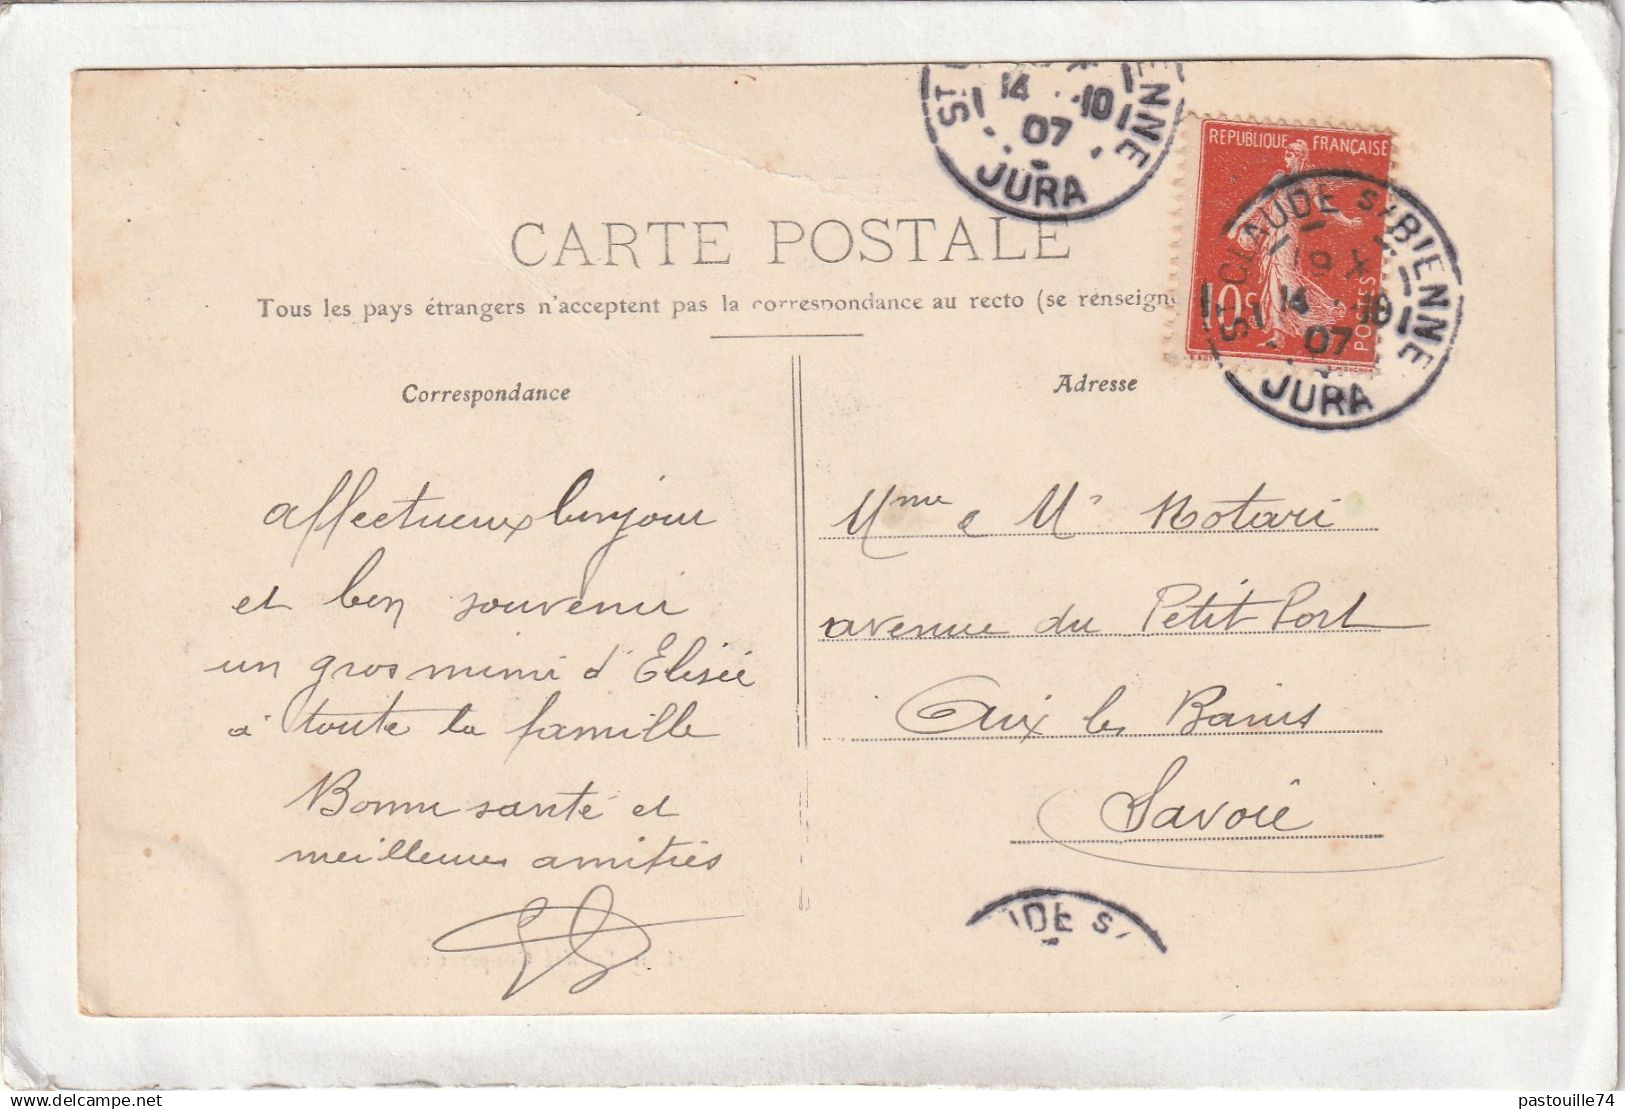 ST
ENNE
14 10
07
JURA
REPUBLIQUE FRANÇAISE
ST CLAUDE S/ BIENNE
19 X
14 10
07
JURA
10c
POSTES
CARTE POSTALE
Tous les pays étrangers n'acceptent pas la correspondance au recto (se renseign
Correspondance
Adresse
affectueux bonjour
et bon souvenir
un gros mimi d'Elisée
à toute la famille
Bonne santé et
meilleures amitiés
Mme e Mr Notari
avenue du Petit Port
Aix les Bains
Savoie
UDE S/
delcampe.net
pastouille74